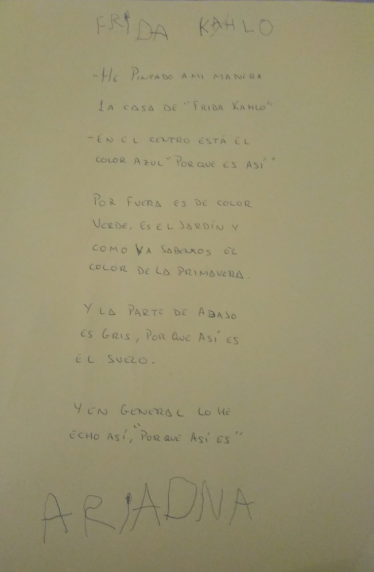 FRIDA KAHLO
-HE PINTADO A MI MANERA
LA CASA DE "FRIDA KAHLO"
-EN EL CENTRO ESTÁ EL
COLOR AZUL "PORQUE ES ASÍ"
POR FUERA ES DE COLOR
VERDE. ES EL JARDÍN Y
COMO YA SABEMOS EL
COLOR DE LA PRIMAVERA.
Y LA PARTE DE ABAJO
ES GRIS, PORQUE ASÍ ES
EL SUELO.
Y EN GENERAL LO HE
ECHO ASÍ, "PORQUE ASÍ ES"
ARIADNA